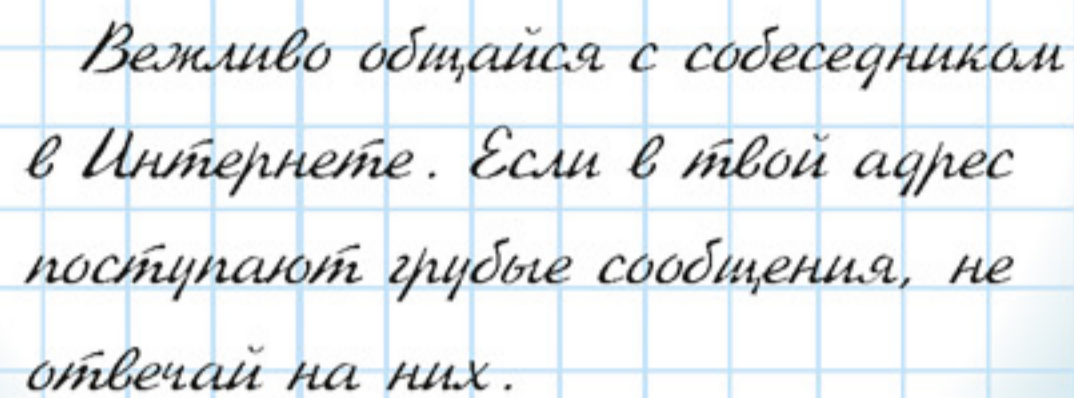 Вежливо общайся с собеседником
в Интернете. Если в твой адрес
поступают грубые сообщения, не
отвечай на них.